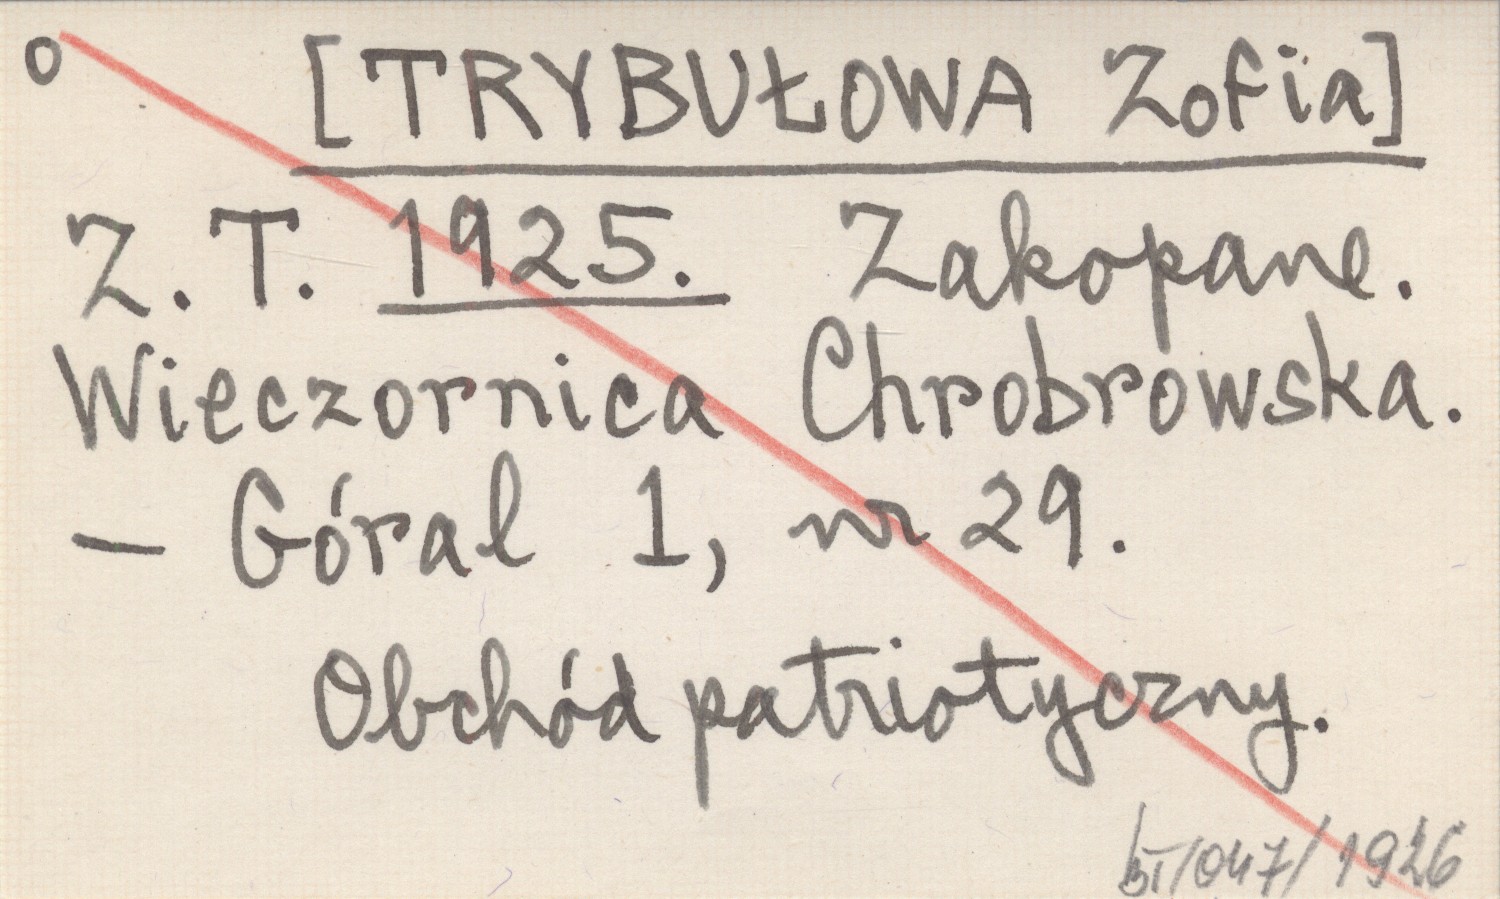 o [TRYBUŁOWA Zofia]
Z. T. 1925. Zakopane.
Wieczornica Chrobrowska.
– Góral 1, nr 29.
Obchód patriotyczny.
/047/1926